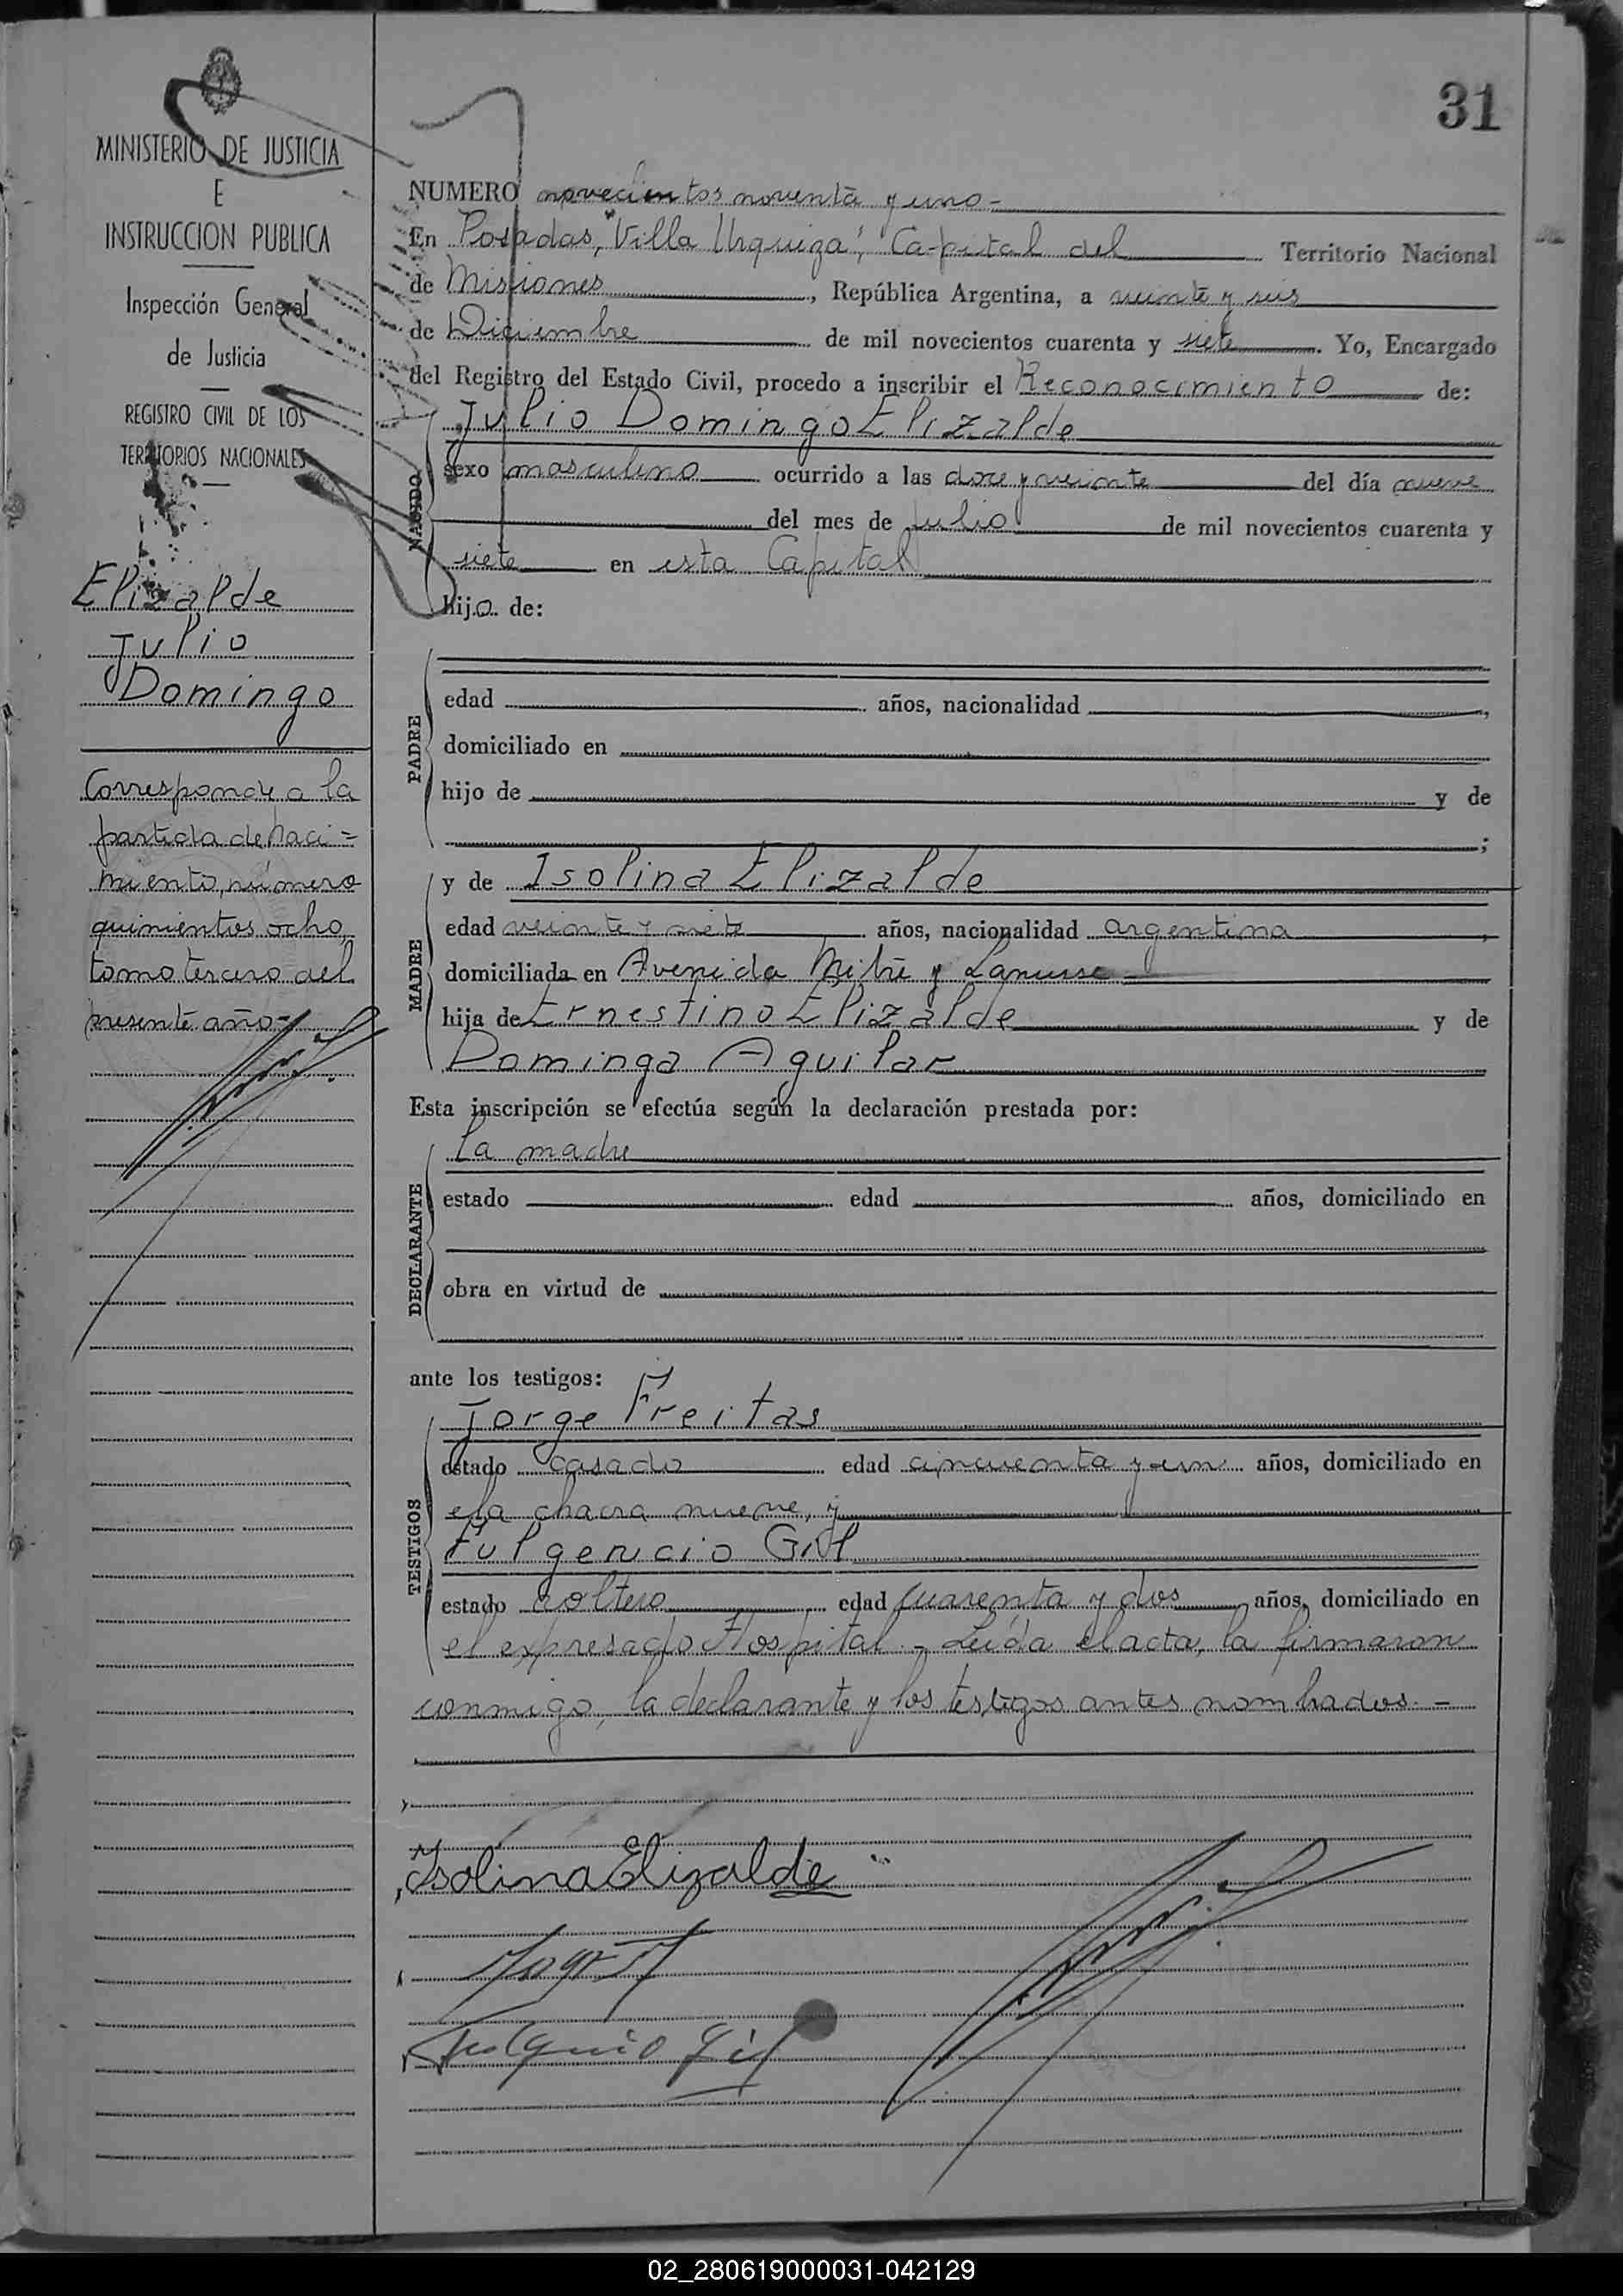 31
MINISTERIO DE JUSTICIA
E
INSTRUCCION PUBLICA
Inspección General
de Justicia
REGISTRO CIVIL DE LOS
TERRITORIOS NACIONALES
Elizalde
Julio
Domingo
Corresponde a la
partida de naci=
miento, número
quinientos ocho,
tomo tercero del
presente año-
NUMERO novecientos noventa y uno-
En Posadas, "Villa Urquiza", Capital del Territorio Nacional
de Misiones, República Argentina, a veinte y seis
de Diciembre de mil novecientos cuarenta y siete. Yo, Encargado
del Registro del Estado Civil, procedo a inscribir el Reconocimiento de:
NACIDO
Julio Domingo Elizalde
sexo masculino ocurrido a las doce y veinte del día nueve
del mes de Julio de mil novecientos cuarenta y
siete en esta Capital
hijo de:
PADRE
edad años, nacionalidad ,
domiciliado en
hijo de y de
;
MADRE
y de Isolina Elizalde
edad veinte y siete años, nacionalidad argentina,
domiciliada en Avenida Mitre y Lanusse
hija de Ernestino Elizalde y de
Dominga Aguilar
Esta inscripción se efectúa según la declaración prestada por:
DECLARANTE
La madre
estado edad años, domiciliado en
obra en virtud de
ante los testigos:
TESTIGOS
Jorge Freitas
estado casado edad cincuenta y un años, domiciliado en
la chacra nueve, y
Fulgencio Gil
estado soltero edad cuarenta y dos años, domiciliado en
el expresado Hospital - Leída el acta, la firmaron
conmigo, la declarante y los testigos antes nombrados.-
Isolina Elizalde
Fulgencio Gil
02_280619000031-042129